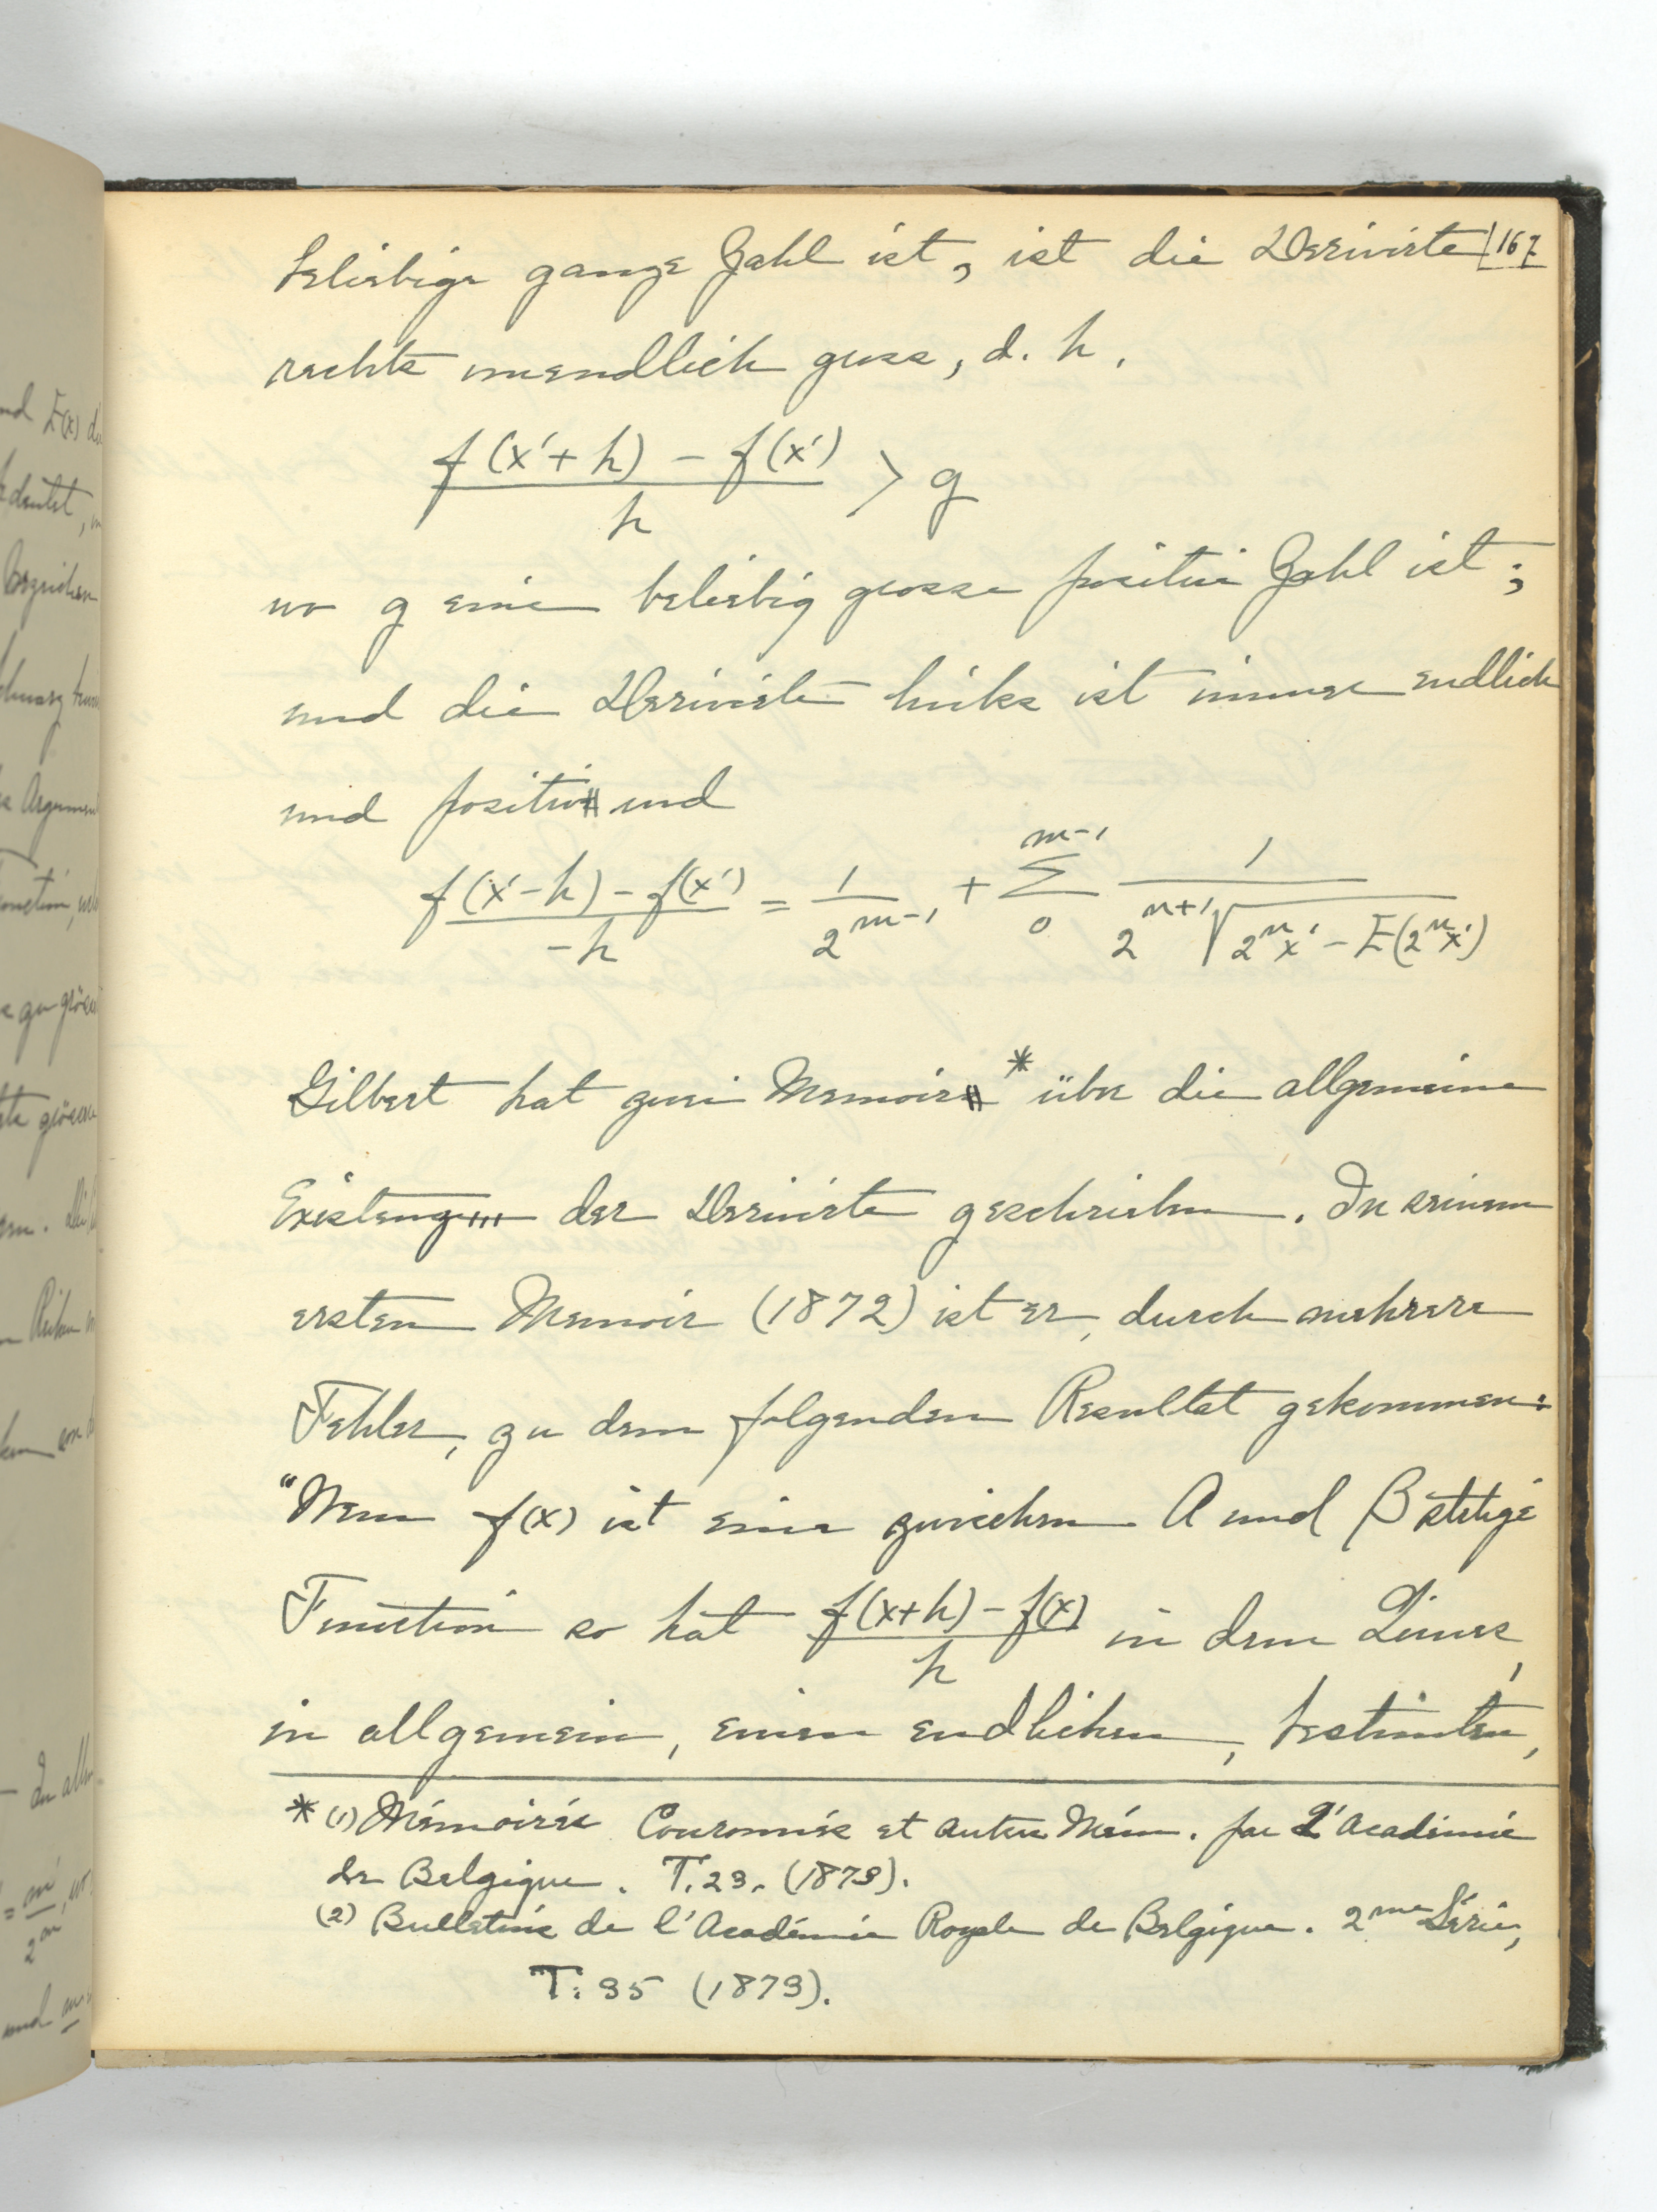 beliebige ganze Zahl ist, ist die Derivirte 167
rechts unendlich gross, d. h.
f(x'+h) - f(x') / h > g
wo g eine beliebig grosse positive Zahl ist;
und die Derivirte links ist immer endlich
und positiv und
f(x'-h) - f(x') / -h = 1 / 2^{m-1} + Σ_0^{m-1} 1 / 2^{n+1} √(2^n x' - E(2^n x'))
Gilbert hat zwei Memoire * über die allgemeine
Existenz der Derivirte geschrieben. In seinem
ersten Memoir (1872) ist er, durch mehrere
Fehler, zu dem folgenden Resultat gekommen:
"Wenn f(x) ist eine zwischen A und B stetige
Function so hat f(x+h) - f(x) / h in dem Limes,
in allgemein, einen endlichen, bestimten,
* (1) Mémoires Couronnés et autres Mém. par L'Académie
de Belgique. T. 23. (1873).
(2) Bulletins de l'Académie Royale de Belgique. 2me Série,
T. 35 (1873).
nd E(x) di
bedeutet,
Bezeichen
Argument
Function,
zu grösse
grösser
Reihen
von
In allen
= m' / 2^m, wo
und